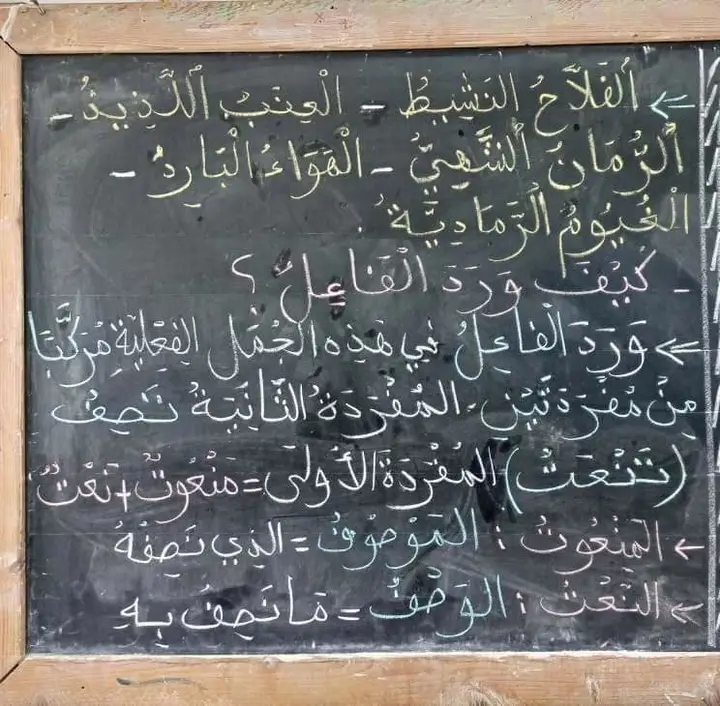 ← اَلْفَلاَّحُ النَشِيطُ - الْعِنَبُ اَللَّذِيذُ -
اَلرُّمَانُ اَلشَّهِيُّ - الْهَوَاءُ الْبَارِدُ -
الْغُيُومُ اَلرَّمَادِيَّةُ.
- كَيْفَ وَرَدَ الْفَاعِلُ ؟
← وَرَدَ الفَاعِلُ فِي هَذِهِ الجُمَلِ الفِعْلِيَّةِ مُرَكَّبًا
مِنْ مُفْرَدَتَيْنِ، المُفْرَدَةُ الثَّانِيَةُ تَصِفُ
(تَنْعَتُ) المُفْرَدَةَ الأُولَى = مَنْعُوتٌ + نَعْتٌ
← المَنْعُوتُ : المَوْصُوفُ = الذِي نَصِفُهُ
← النَّعْتُ : الوَصْفُ = مَا نَصِفُ بِهِ